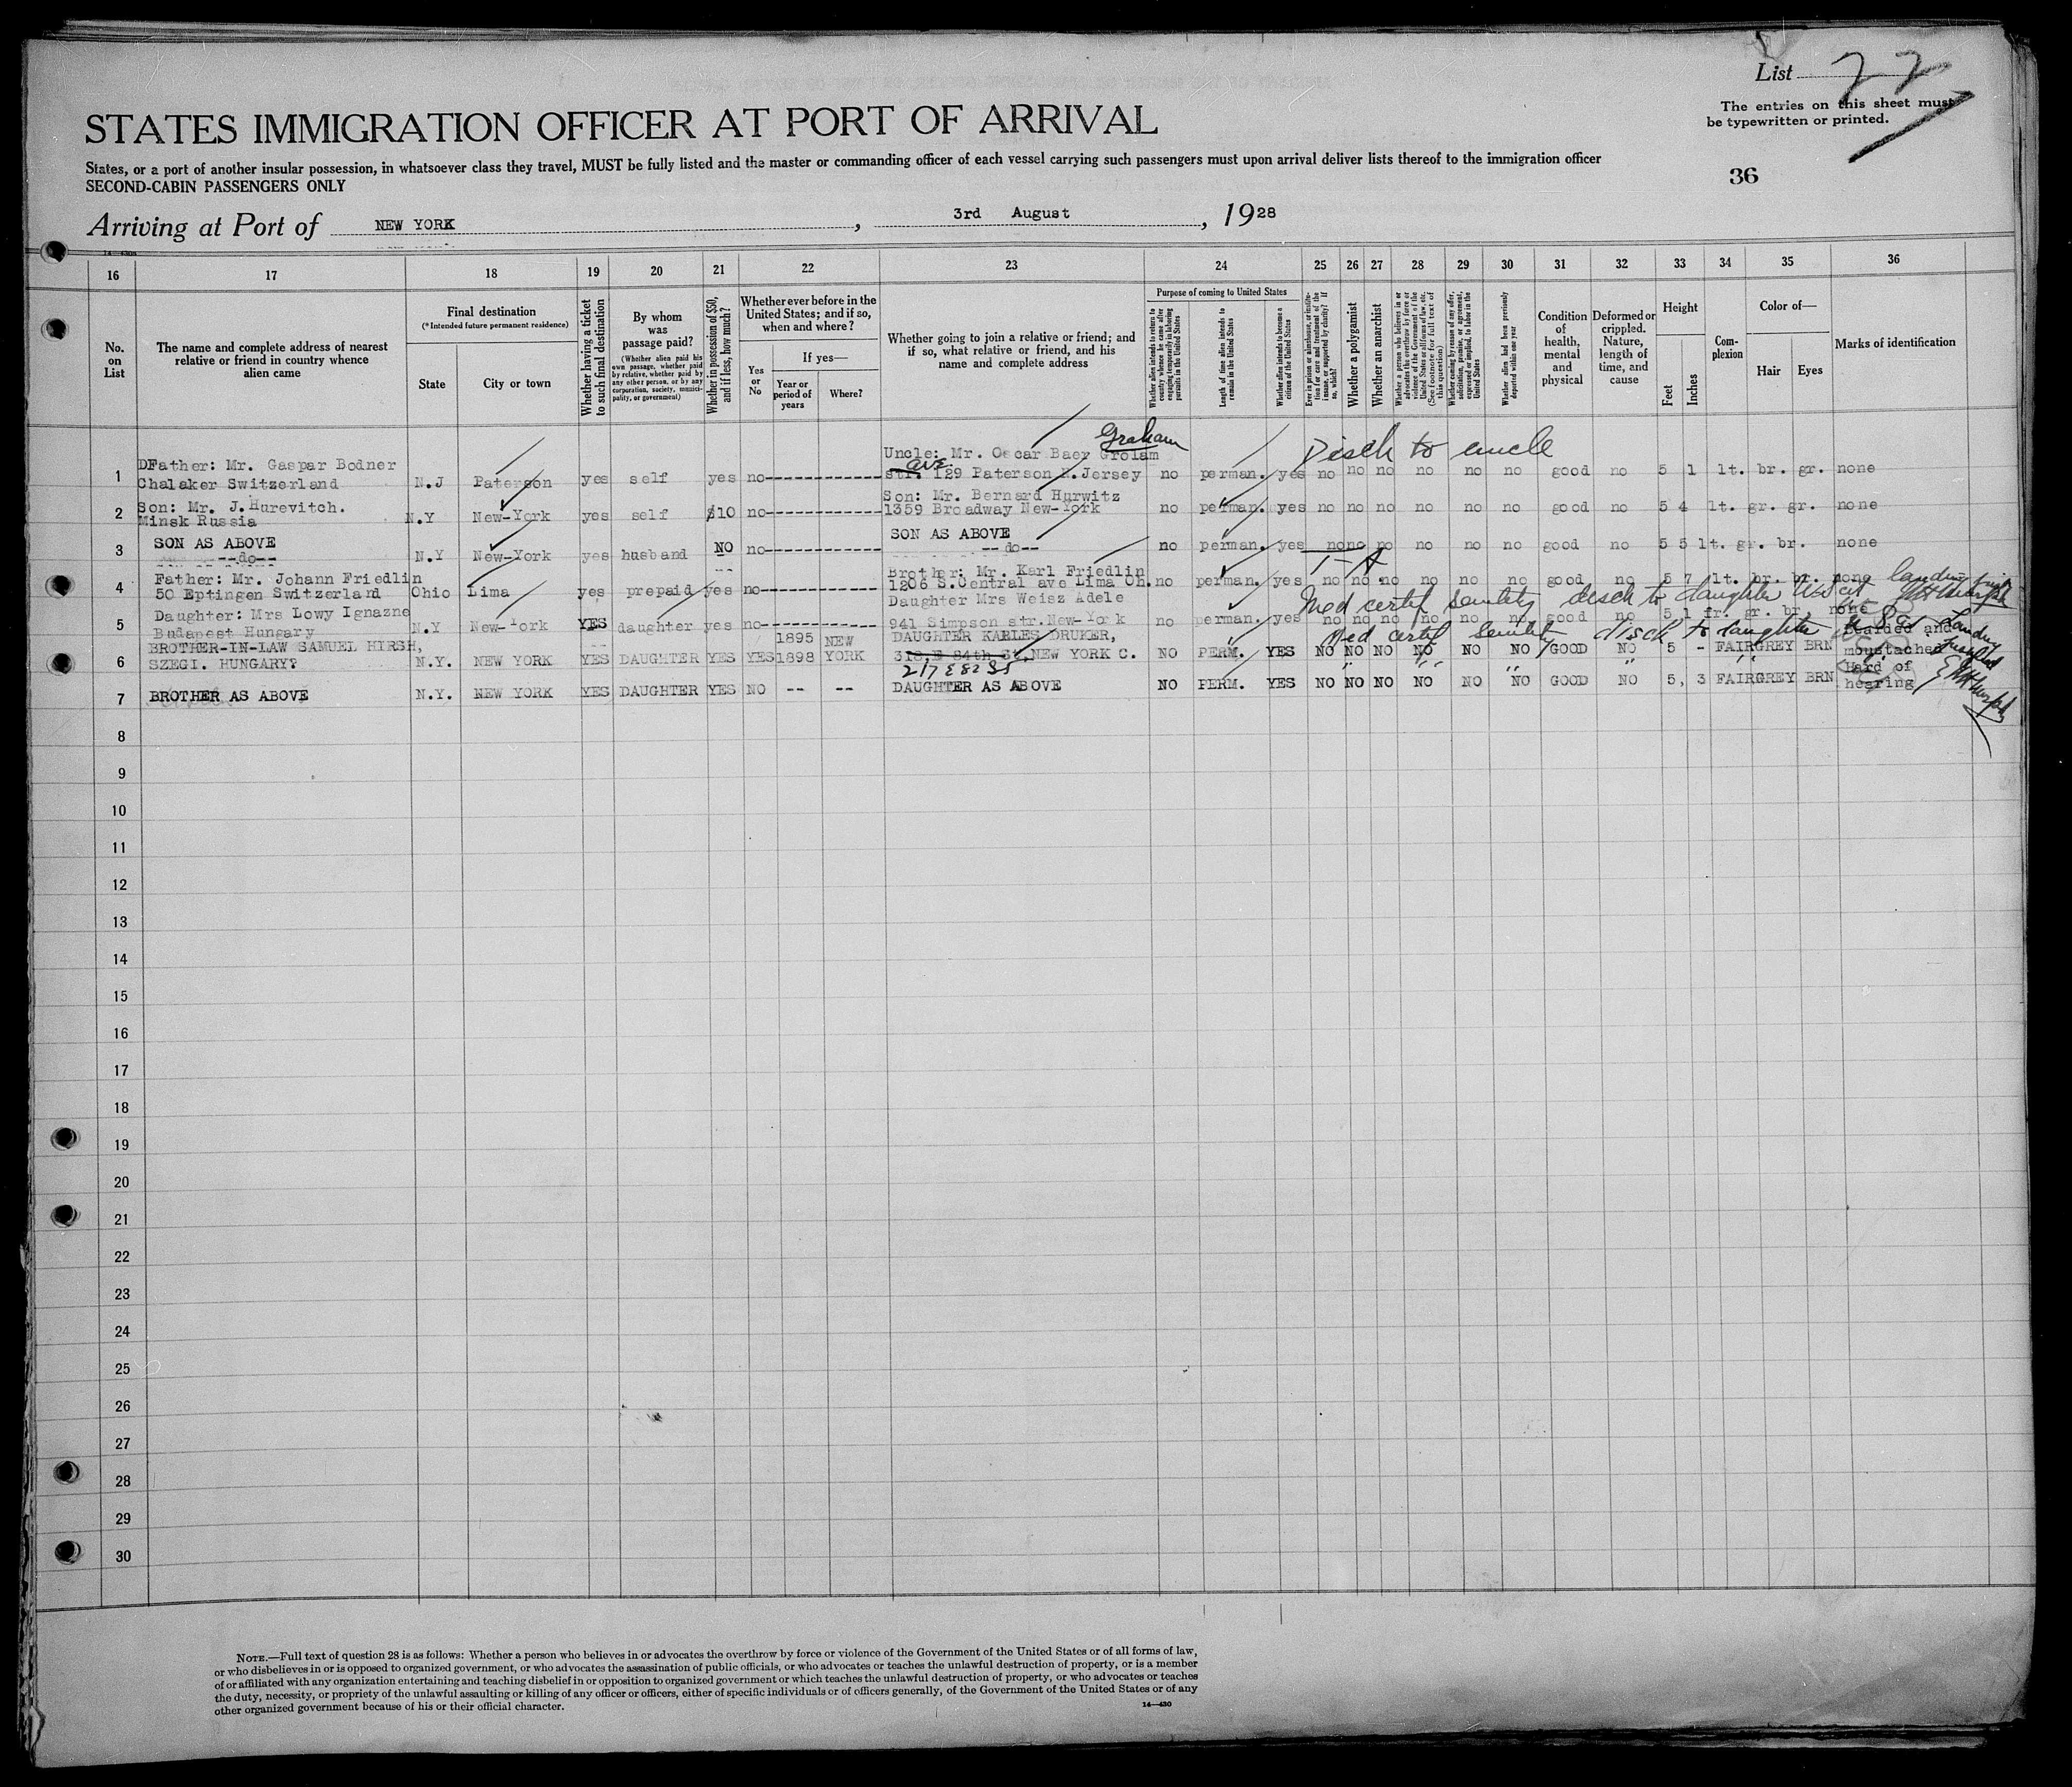 List 22
The entries on this sheet must
be typewritten or printed.
STATES IMMIGRATION OFFICER AT PORT OF ARRIVAL
States, or a port of another insular possession, in whatsoever class they travel, MUST be fully listed and the master or commanding officer of each vessel carrying such passengers must upon arrival deliver lists thereof to the immigration officer
SECOND-CABIN PASSENGERS ONLY
36
Arriving at Port of NEW YORK, 3rd August, 1928
16 17 18 19 20 21 22 23 24 25 26 27 28 29 30 31 32 33 34 35 36
No. on List
The name and complete address of nearest relative or friend in country whence alien came
Final destination
(*Intended future permanent residence)
State
City or town
Whether having a ticket to such final destination
By whom was passage paid?
(Whether alien paid his own passage, whether paid by relative, whether paid by any other person, or by any corporation, society, municipality, or government)
Whether in possession of $50, and if less, how much?
Whether ever before in the United States; and if so, when and where?
Yes or No
If yes—
Year or period of years
Where?
Whether going to join a relative or friend; and if so, what relative or friend, and his name and complete address
Purpose of coming to United States
Whether alien intends to return to country whence he came after engaging temporarily in laboring pursuits in the United States
Length of time alien intends to remain in the United States
Whether alien intends to become a citizen of the United States
Ever in prison or almshouse, or institution for care and treatment of the insane, or supported by charity? If so, which?
Whether a polygamist
Whether an anarchist
Whether a person who believes in or advocates the overthrow by force or violence of the Government of the United States or all forms of law, etc. (See footnote for full text of this question)
Whether coming by reason of any offer, solicitation, promise, or agreement, expressed or implied, to labor in the United States
Whether alien had been previously deported within one year
Condition of health, mental and physical
Deformed or crippled. Nature, length of time, and cause
Height
Feet
Inches
Complexion
Color of—
Hair
Eyes
Marks of identification
Graham
Disch to uncle
DFather: Mr. Gaspar Bodner Uncle: Mr. Oscar Baey Grolam
ave
1 Chalaker Switzerland N.J Paterson yes self yes no------------- str. 129 Paterson N.Jersey no perman. yes no no no no no no good no 5 1 lt. br. gr. none
Son: Mr. J.Hurevitch. Son: Mr. Bernard Hurwitz
2 Minsk Russia N.Y New-York yes self $10 no------------- 1359 Broadway New-York no perman. yes no no no no no no good no 5 4 lt. gr. gr. none
SON AS ABOVE SON AS ABOVE
3 --do-- N.Y New-York yes husband NO no------------- --do-- no perman. yes no no no no no no good no 5 5 lt. gr. br. none
Father: Mr. Johann Friedlin Brother: Mr. Karl Friedlin
4 50 Eptingen Switzerland Ohio Lima yes prepaid yes no------------- 1206 S.Central ave Lima Oh. no perman. yes no no no no no no good no 5 7 lt. br. br. none
Med certif senility disch to daughter
Daughter: Mrs Lowy Ignazne Daughter Mrs Weisz Adele
5 Budapest Hungary N.Y New-York YES daughter yes no------------- 941 Simpson str.New-York no perman. yes no no no no no no good no 5 1 fr. gr. br. none
Med certif Senility disch to daughter
BROTHER-IN-LAW SAMUEL HIRSH, 1895 NEW DAUGHTER KARLES DRUKER, Bearded and
6 SZEGI. HUNGARY? N.Y. NEW YORK YES DAUGHTER YES YES 1898 YORK 318,E 84th St, NEW YORK C. NO PERM. YES NO NO NO NO NO NO GOOD NO 5 - FAIR GREY BRN moustached
217 E 82 St
Hard of
7 BROTHER AS ABOVE N.Y. NEW YORK YES DAUGHTER YES NO -- -- DAUGHTER AS ABOVE NO PERM. YES NO NO NO NO NO NO GOOD NO 5, 3 FAIR GREY BRN hearing
8
9
10
11
12
13
14
15
16
17
18
19
20
21
22
23
24
25
26
27
28
29
30
NOTE.—Full text of question 28 is as follows: Whether a person who believes in or advocates the overthrow by force or violence of the Government of the United States or of all forms of law,
or who disbelieves in or is opposed to organized government, or who advocates the assassination of public officials, or who advocates or teaches the unlawful destruction of property, or is a member
of or affiliated with any organization entertaining and teaching disbelief in or opposition to organized government or which teaches the unlawful destruction of property, or who advocates or teaches
the duty, necessity, or propriety of the unlawful assaulting or killing of any officer or officers, either of specific individuals or of officers generally, of the Government of the United States or of any
other organized government because of his or their official character.
14—430